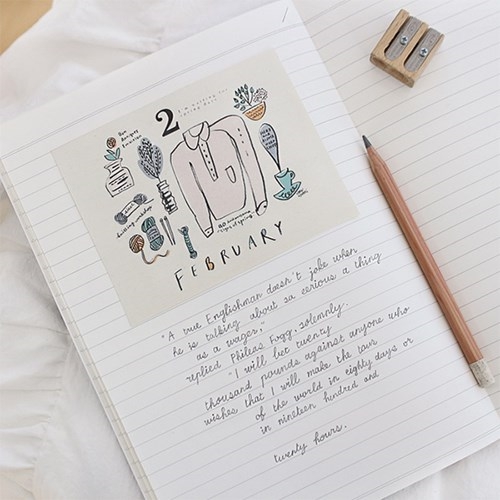 2
FEBRUARY
knitting workshop
"A true Englishman doesn't joke when
he is talking about so serious a thing
as a wager,"
replied Phileas Fogg, solemnly.
"I will bet twenty
thousand pounds against anyone who
wishes that I will make the tour
of the world in eighty days or
in nineteen hundred and
twenty hours.